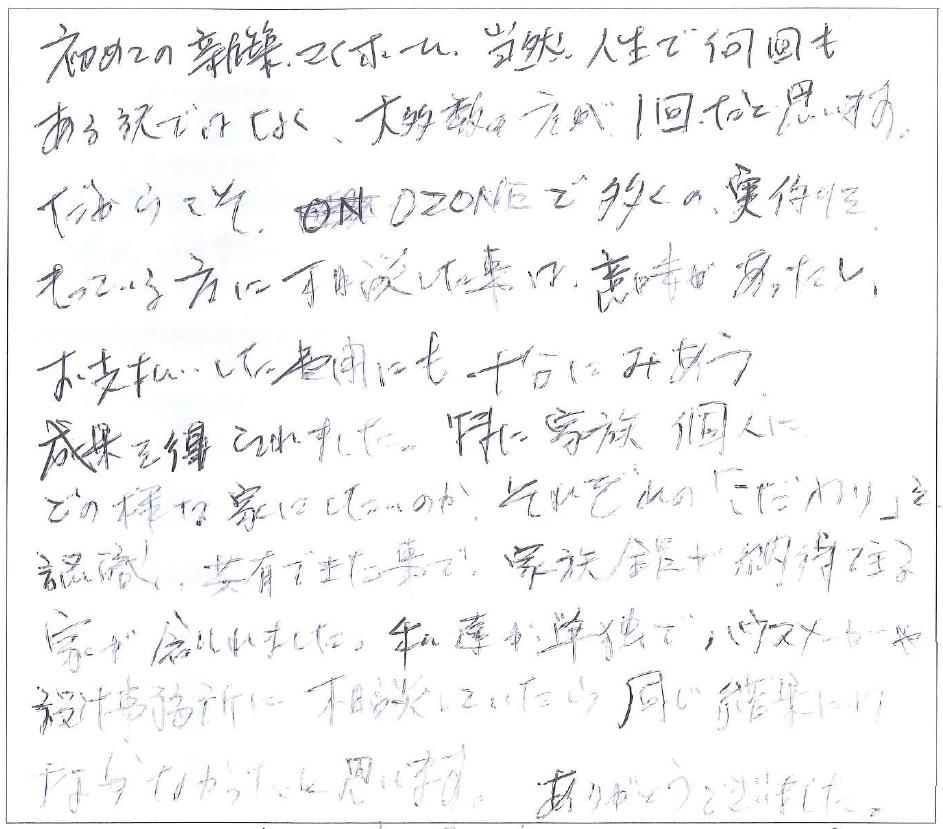 初めての新築、マイホーム、当然、人生で何回も
ある訳ではなく、大多数の方が1回だと思います。
だからこそ、OZONEで多くの、実作りを
もっている方に相談した事は、意味があったし、
お支払いした費用にも十分にみあう
成果を得られました。特に家族個人に
どの様な家にしたいのか、それぞれの「こだわり」を
認識し、共有できた事で、家族全員が納得できる
家が創れました。私達が単独で、ハウスメーカーや
設計事務所に相談していたら同じ結果に
ならなかったと思います。ありがとうございました。